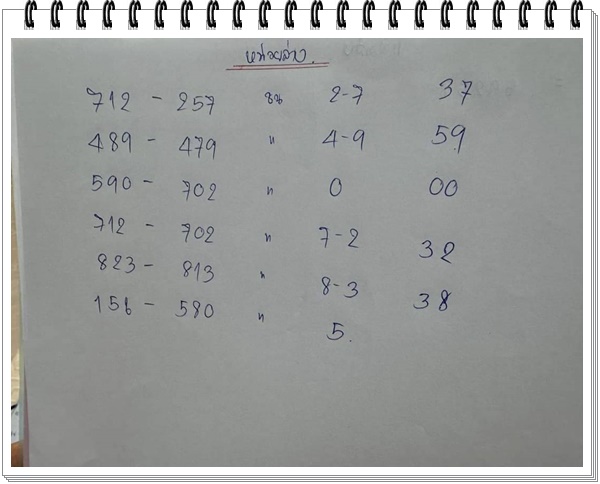 หน่วยล่าง.
712 - 257 ชน 2-7 37
489 - 479 " 4-9 59
590 - 702 " 0 00
712 - 702 " 7-2 32
823 - 813 " 8-3 38
156 - 580 " 5.